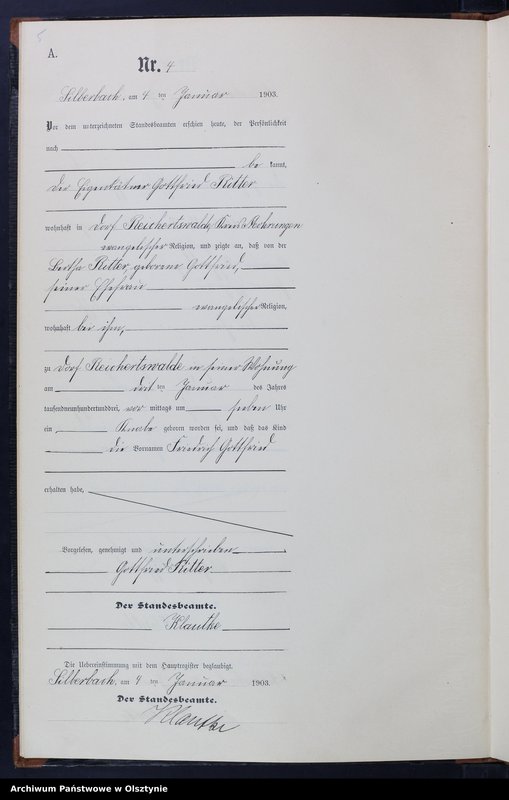 5
A.
Nr. 4
Silberbach, am 4 ten Januar 1903.
Vor dem unterzeichneten Standesbeamten erschien heute, der Persönlichkeit
nach
be kannt,
der Eigenkätner Gottfried Ritter
wohnhaft in Dorf Reichertswalde, Kreis Mohrungen
evangelischer Religion, und zeigte an, daß von der
Bertha Ritter, geborene Gottfried,
seiner Ehefrau
evangelischer Religion,
wohnhaft bei ihm,
zu Dorf Reichertswalde in seiner Wohnung
am ten Januar des Jahres
tausendneunhundertunddrei, vor mittags um sieben Uhr
ein Knabe geboren worden sei, und daß das Kind
die Vornamen Friedrich Gottfried
erhalten habe,
Vorgelesen, genehmigt und unterschrieben
Gottfried Ritter
Der Standesbeamte.
Klautke
Die Uebereinstimmung mit dem Hauptregister beglaubigt,
Silberbach, am 4 ten Januar 1903.
Der Standesbeamte.
Klautke
Archiwum Państwowe w Olsztynie